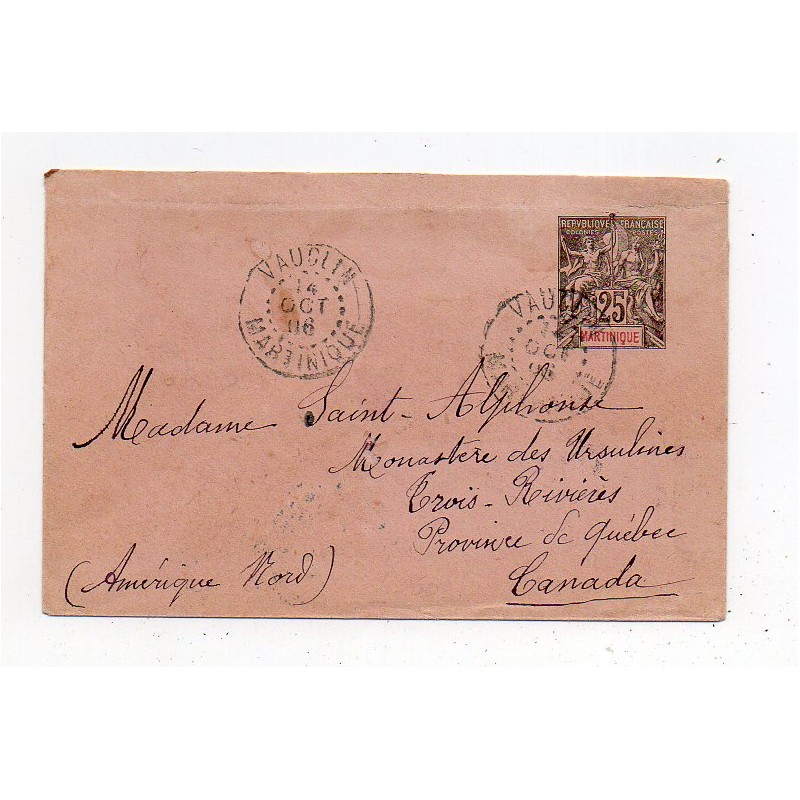 REPUBLIQUE FRANÇAISE
COLONIES POSTES
25
MARTINIQUE
VAUCLIN
14
OCT
06
MARTINIQUE
VAUCLIN
14
OCT
06
Madame Saint-Alphonse
Monastère des Ursulines
Trois-Rivières
Province de Québec
(Amérique Nord)
Canada